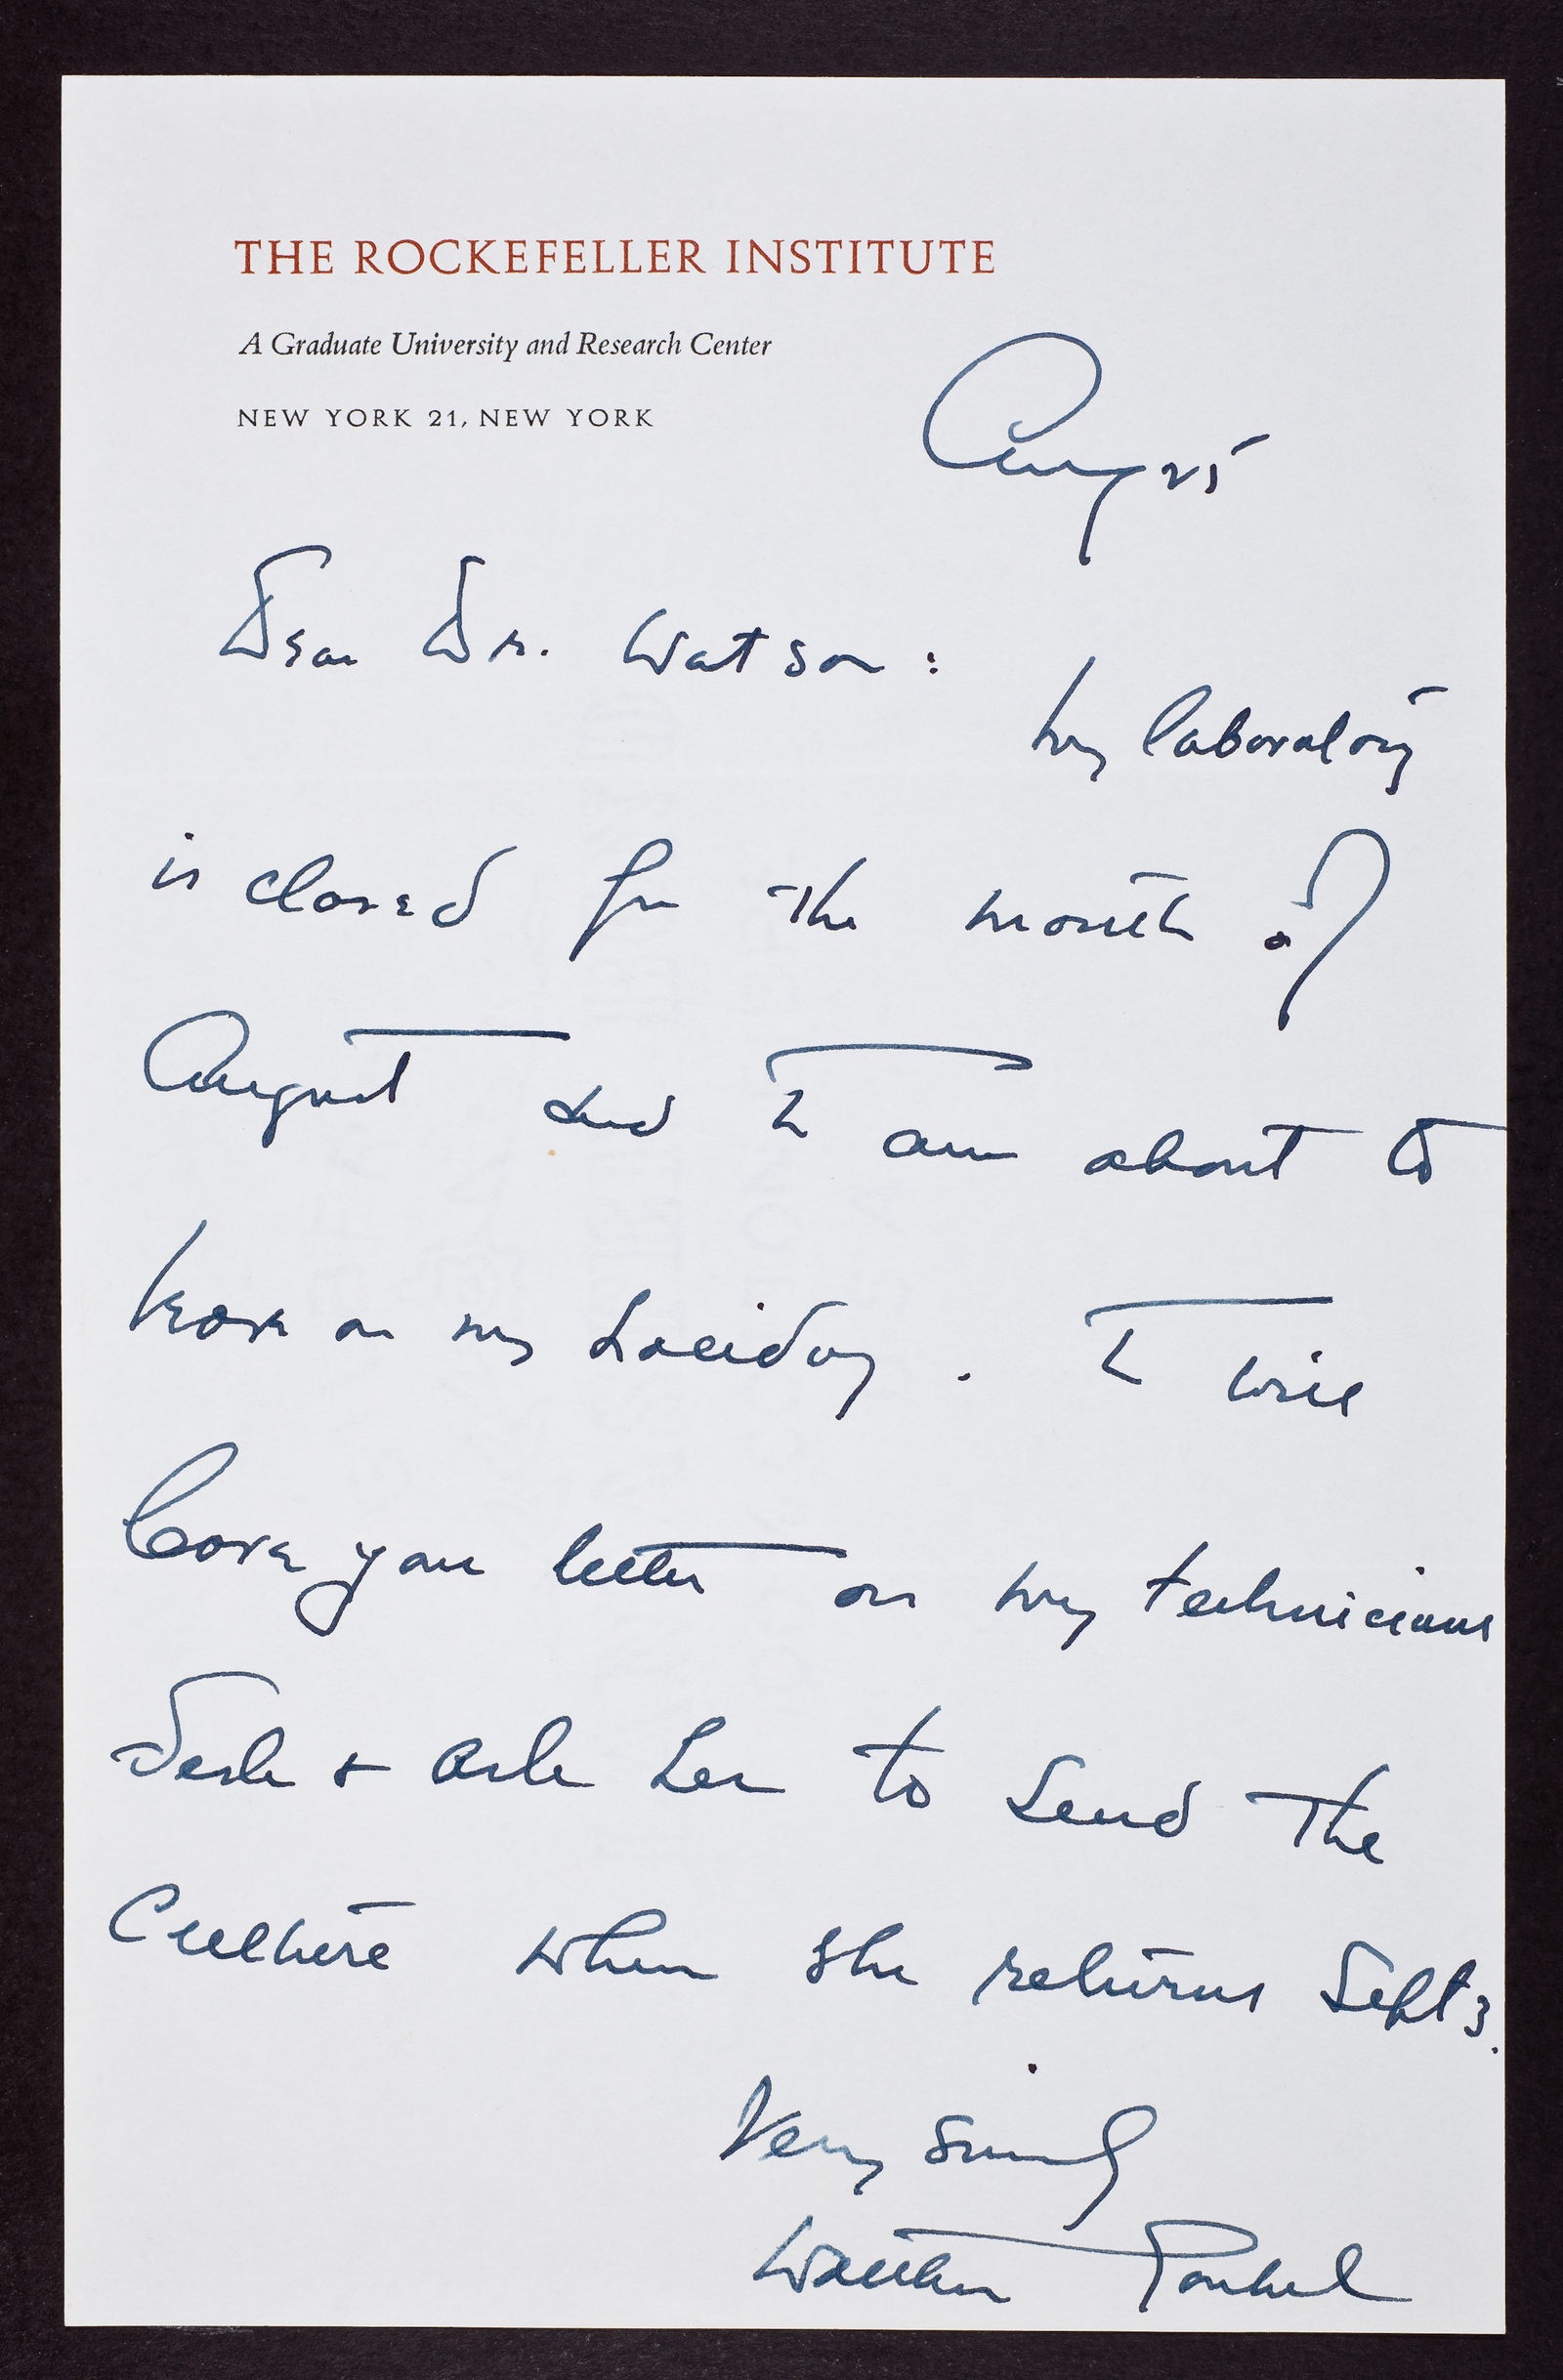 THE ROCKEFELLER INSTITUTE
A Graduate University and Research Center
NEW YORK 21, NEW YORK
Aug 25
Dear Dr. Watson:
My laboratory
is closed for the month of
August and I am about to
leave on my holiday. I will
leave your letter on my technicians
desk + ask her to send the
culture when she returns Sept 3.
Very sincerely
Walther Goebel